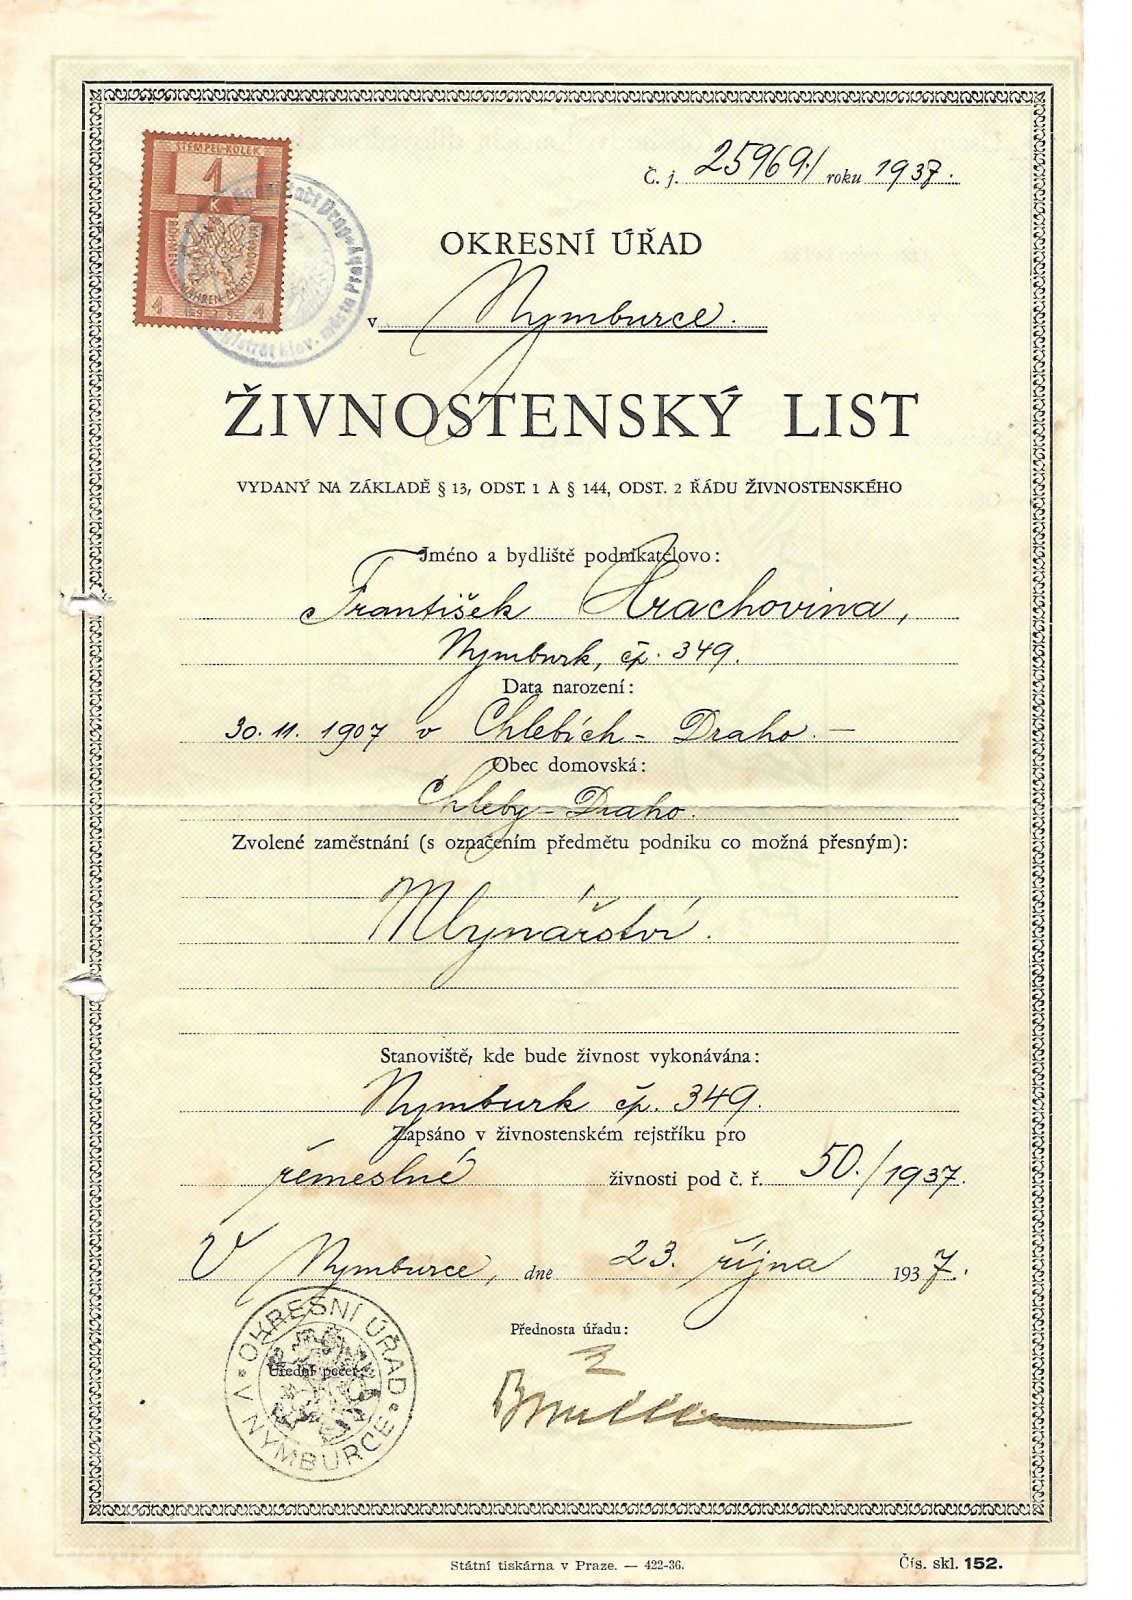 STEMPEL-KOLEK
1
K
BÖHMEN MÄHREN-ČECHY A MORAVA
1 1939 1
magistrát hlav. města Prahy
Č. j. 25969/ roku 1937.
OKRESNÍ ÚŘAD
v Nymburce.
ŽIVNOSTENSKÝ LIST
VYDANÝ NA ZÁKLADĚ § 13, ODST. 1 A § 144, ODST. 2 ŘÁDU ŽIVNOSTENSKÉHO
Jméno a bydliště podnikatelovo:
František Hrachovina,
Nymburk, čp. 349.
Data narození:
30. 11. 1907 v Chlebích - Draho. —
Obec domovská:
Chleby - Draho.
Zvolené zaměstnání (s označením předmětu podniku co možná přesným):
Mlynářství.
Stanoviště, kde bude živnost vykonávána:
Nymburk čp. 349.
Zapsáno v živnostenském rejstříku pro
řemeslné živnosti pod č. ř. 50./1937.
V Nymburce, dne 23. října 1937.
Přednosta úřadu:
Úřední pečeť:
OKRESNÍ ÚŘAD
V NYMBURCE
Státní tiskárna v Praze. — 422-36.
Čís. skl. 152.